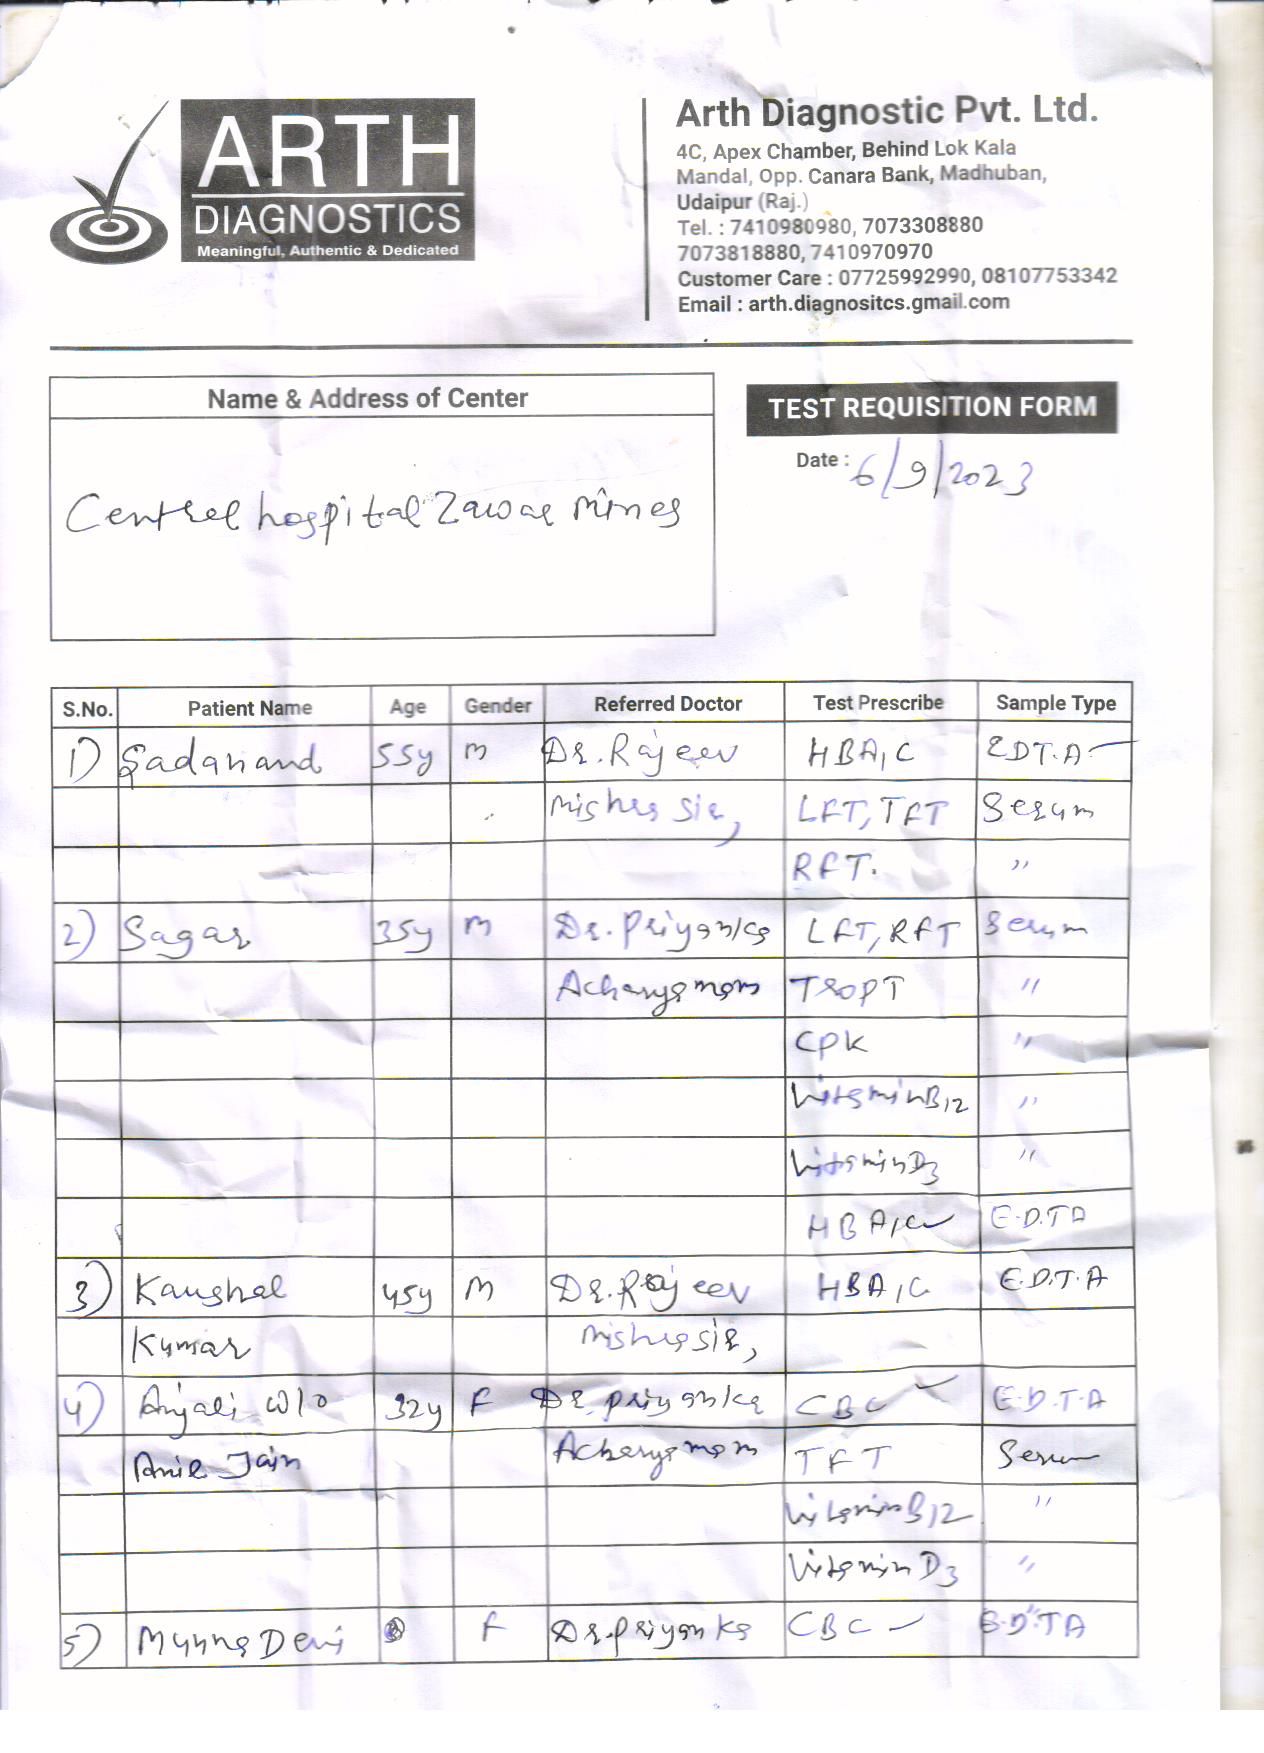 ARTH
DIAGNOSTICS
Meaningful, Authentic & Dedicated
Arth Diagnostic Pvt. Ltd.
4C, Apex Chamber, Behind Lok Kala
Mandal, Opp. Canara Bank, Madhuban,
Udaipur (Raj.)
Tel. : 7410980980, 7073308880
7073818880, 7410970970
Customer Care : 07725992990, 08107753342
Email : arth.diagnositcs.gmail.com
Name & Address of Center
TEST REQUISITION FORM
Date : 6/9/2023
Centrel hospital Zawar Mines
S.No. Patient Name Age Gender Referred Doctor Test Prescribe Sample Type
1) Sadanand 55y M Dr. Rajeev HBA1C EDT.A
Mishra sir, LFT, TFT Serum
RFT. "
2) Sagar 35y M Dr. Priyanka LFT, RFT Serum
Acharya mam TROPT "
CPK "
Vitamin B12 "
Vitamin D3 "
HBA1C E.D.TA
3) Kaushal 45y M Dr. Rajeev HBA1C E.D.T.A
Kumar Mishra sir,
4) Anjali w/o 32y F Dr. Priyanka CBC E.D.T.A
Anil Jain Acharya mam TFT Serum
Vitamin B12 "
Vitamin D3 "
5) Devi F Dr. Priyanka CBC E.D.TA